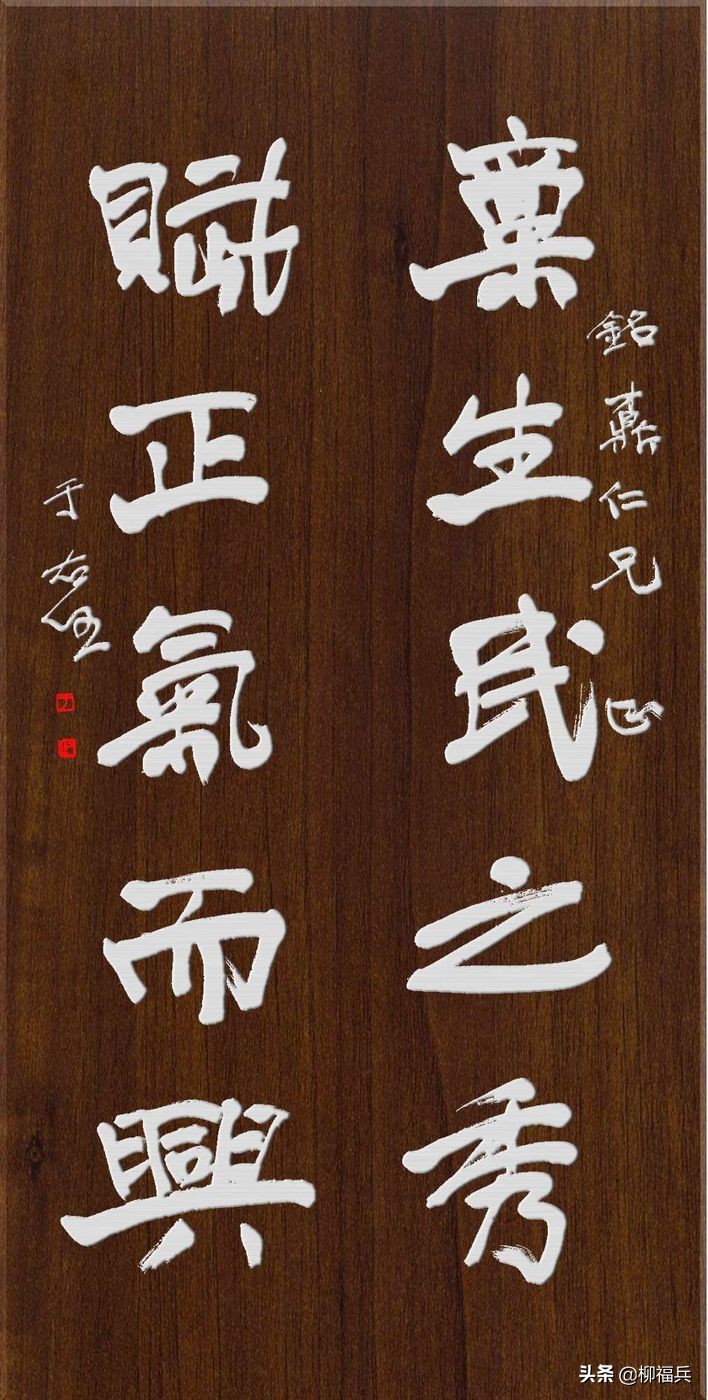 稟生民之秀
銘仁兄正
賦正氣而興
于右任
头条 @柳福兵